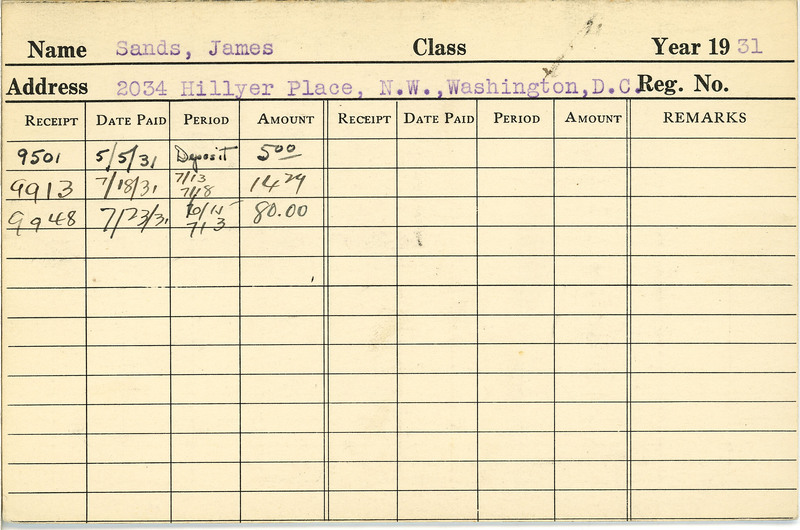 Name Sands, James Class Year 19 31
Address 2034 Hillyer Place, N.W.,Washington,D.C. Reg. No.
RECEIPT DATE PAID PERIOD AMOUNT RECEIPT DATE PAID PERIOD AMOUNT REMARKS
9501 5/5/31 Deposit 5.00
9913 7/18/31 7/13 7/18 14 29
9948 7/23/31 7/13 80.00